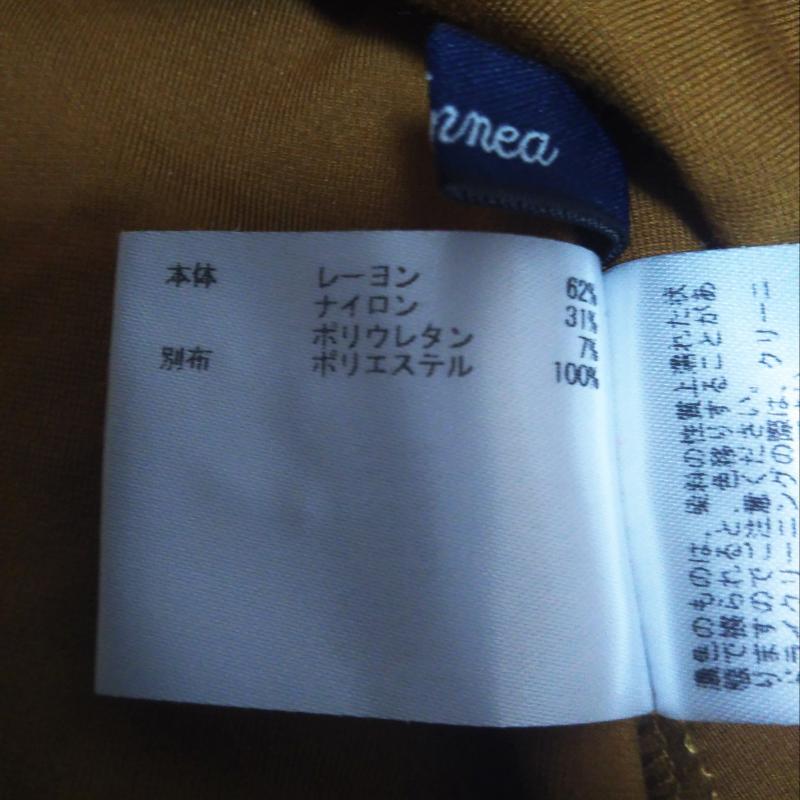 nnea
本体 レーヨン 62%
ナイロン 31%
ポリウレタン 7%
別布 ポリエステル 100%
濃色のものは、染料の性質上濡れた状
態で擦られると、色移りすることがあ
りますのでご注意ください。
ドライクリーニングの際は、
クリーニ